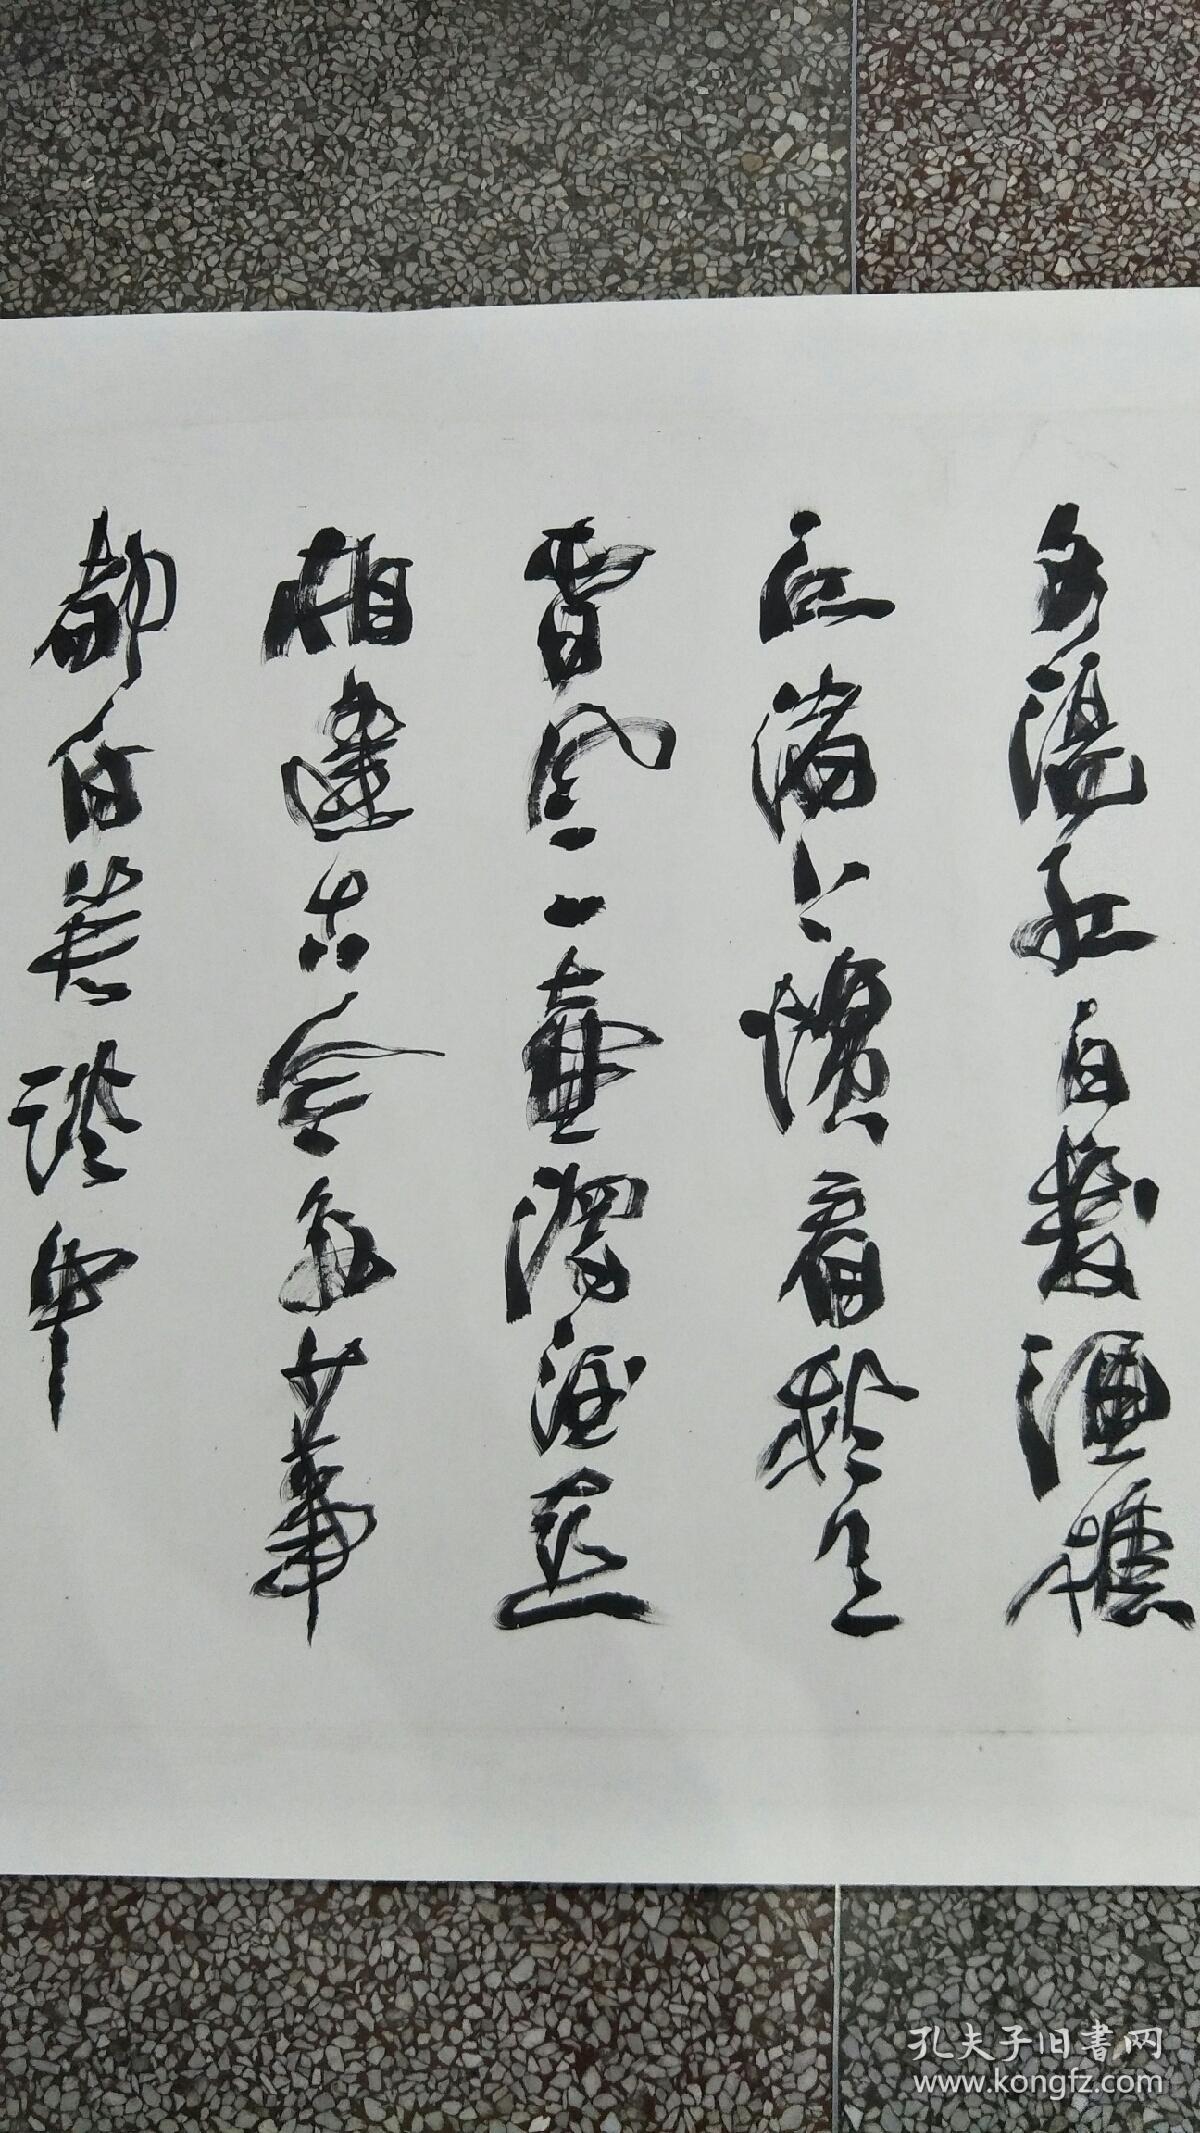 夕陽紅白髮漁樵
江渚上慣看秋月
春風一壺濁酒喜
相逢古今多少事
都付笑談中
孔夫子旧書网
www.kongfz.com